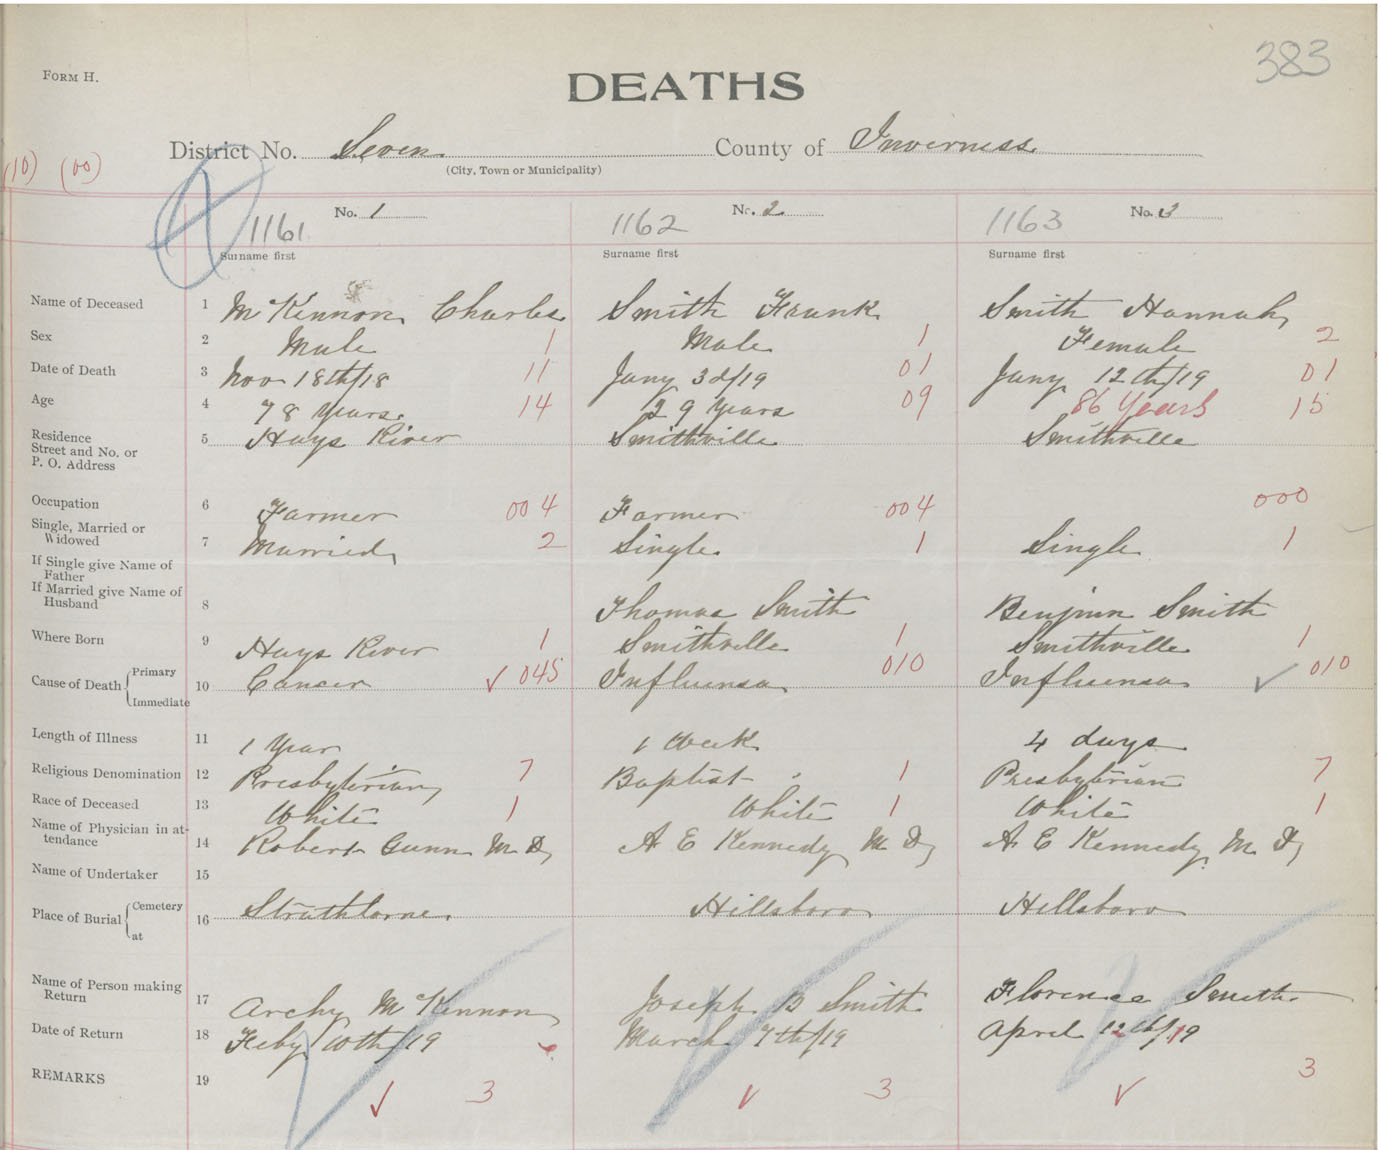 383
FORM H.
DEATHS
District No. Seven County of Inverness
(City, Town or Municipality)
(10) (00)
No. 1 No. 2 No. 3
1161 1162 1163
Surname first Surname first Surname first
Name of Deceased 1 McKennon Charles Smith Frank Smith Hannah
Sex 2 Male 1 Male 1 Female 2
Date of Death 3 Nov 18th/18 11 Jany 3d/19 01 Jany 12th/19 01
Age 4 78 Years 14 29 Years 09 86 Years 15
Residence
Street and No. or
P. O. Address
5 Hays River Smithville Smithville
Occupation 6 Farmer 004 Farmer 004 000
Single, Married or
Widowed 7 Married 2 Single 1 Single 1
If Single give Name of
Father
If Married give Name of
Husband 8 Thomas Smith Benjmn Smith
Where Born 9 Hays River 1 Smithville 1 Smithville 1
Cause of Death Primary
Immediate
10 Cancer ✓ 045 Influensa 010 Influensa ✓ 010
Length of Illness 11 1 Year 1 Week 4 days
Religious Denomination 12 Presbyterian 7 Baptist 1 Presbyterian 7
Race of Deceased 13 White 1 White 1 White 1
Name of Physician in at-
tendance 14 Robert Gunn M.D, A E Kennedy M D, A E Kennedy M. D,
Name of Undertaker 15
Place of Burial Cemetery
at
16 Strathlorne Hillsboro Hillsboro
Name of Person making
Return 17 Archy McKennon Joseph B Smith Florence Smith
Date of Return 18 Feby 10th/19 March 7th/19 April 12th/19
REMARKS 19 ✓ 3 ✓ 3 ✓ 3